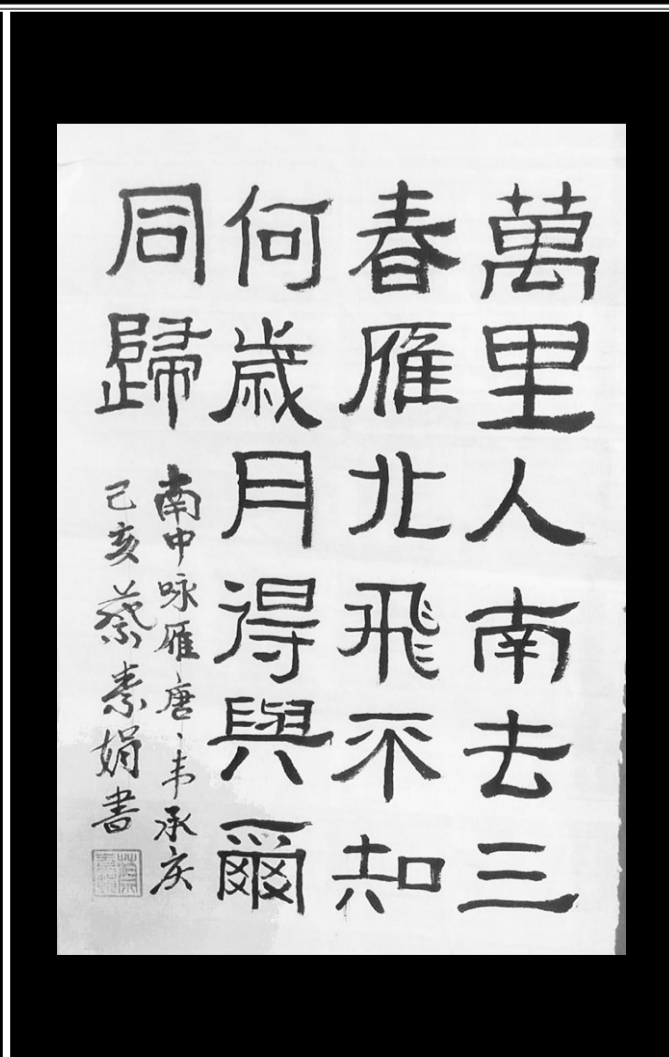 萬里人南去三
春雁北飛不知
何歲月得與爾
同歸
南中咏雁唐、韦承庆
己亥蔡素娟書